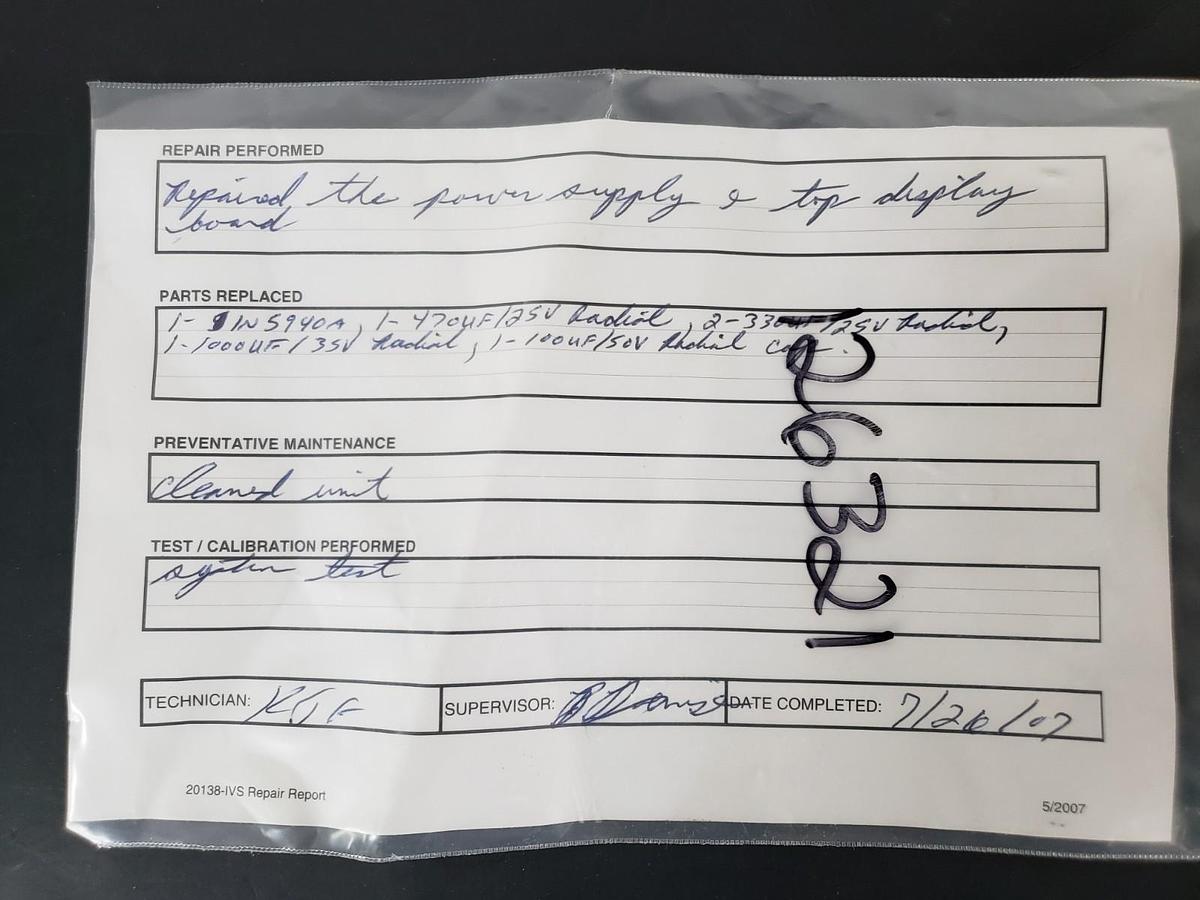 REPAIR PERFORMED
Repaired the power supply & top display
board
PARTS REPLACED
1- 1N5940A, 1- 470UF/25V Radial, 2-330UF/25V Radial,
1-1000UF/35V Radial, 1-100UF/50V Radial cap.
PREVENTATIVE MAINTENANCE
cleaned unit
TEST / CALIBRATION PERFORMED
system test
TECHNICIAN: SUPERVISOR: DATE COMPLETED: 7/26/07
26321
20138-IVS Repair Report
5/2007